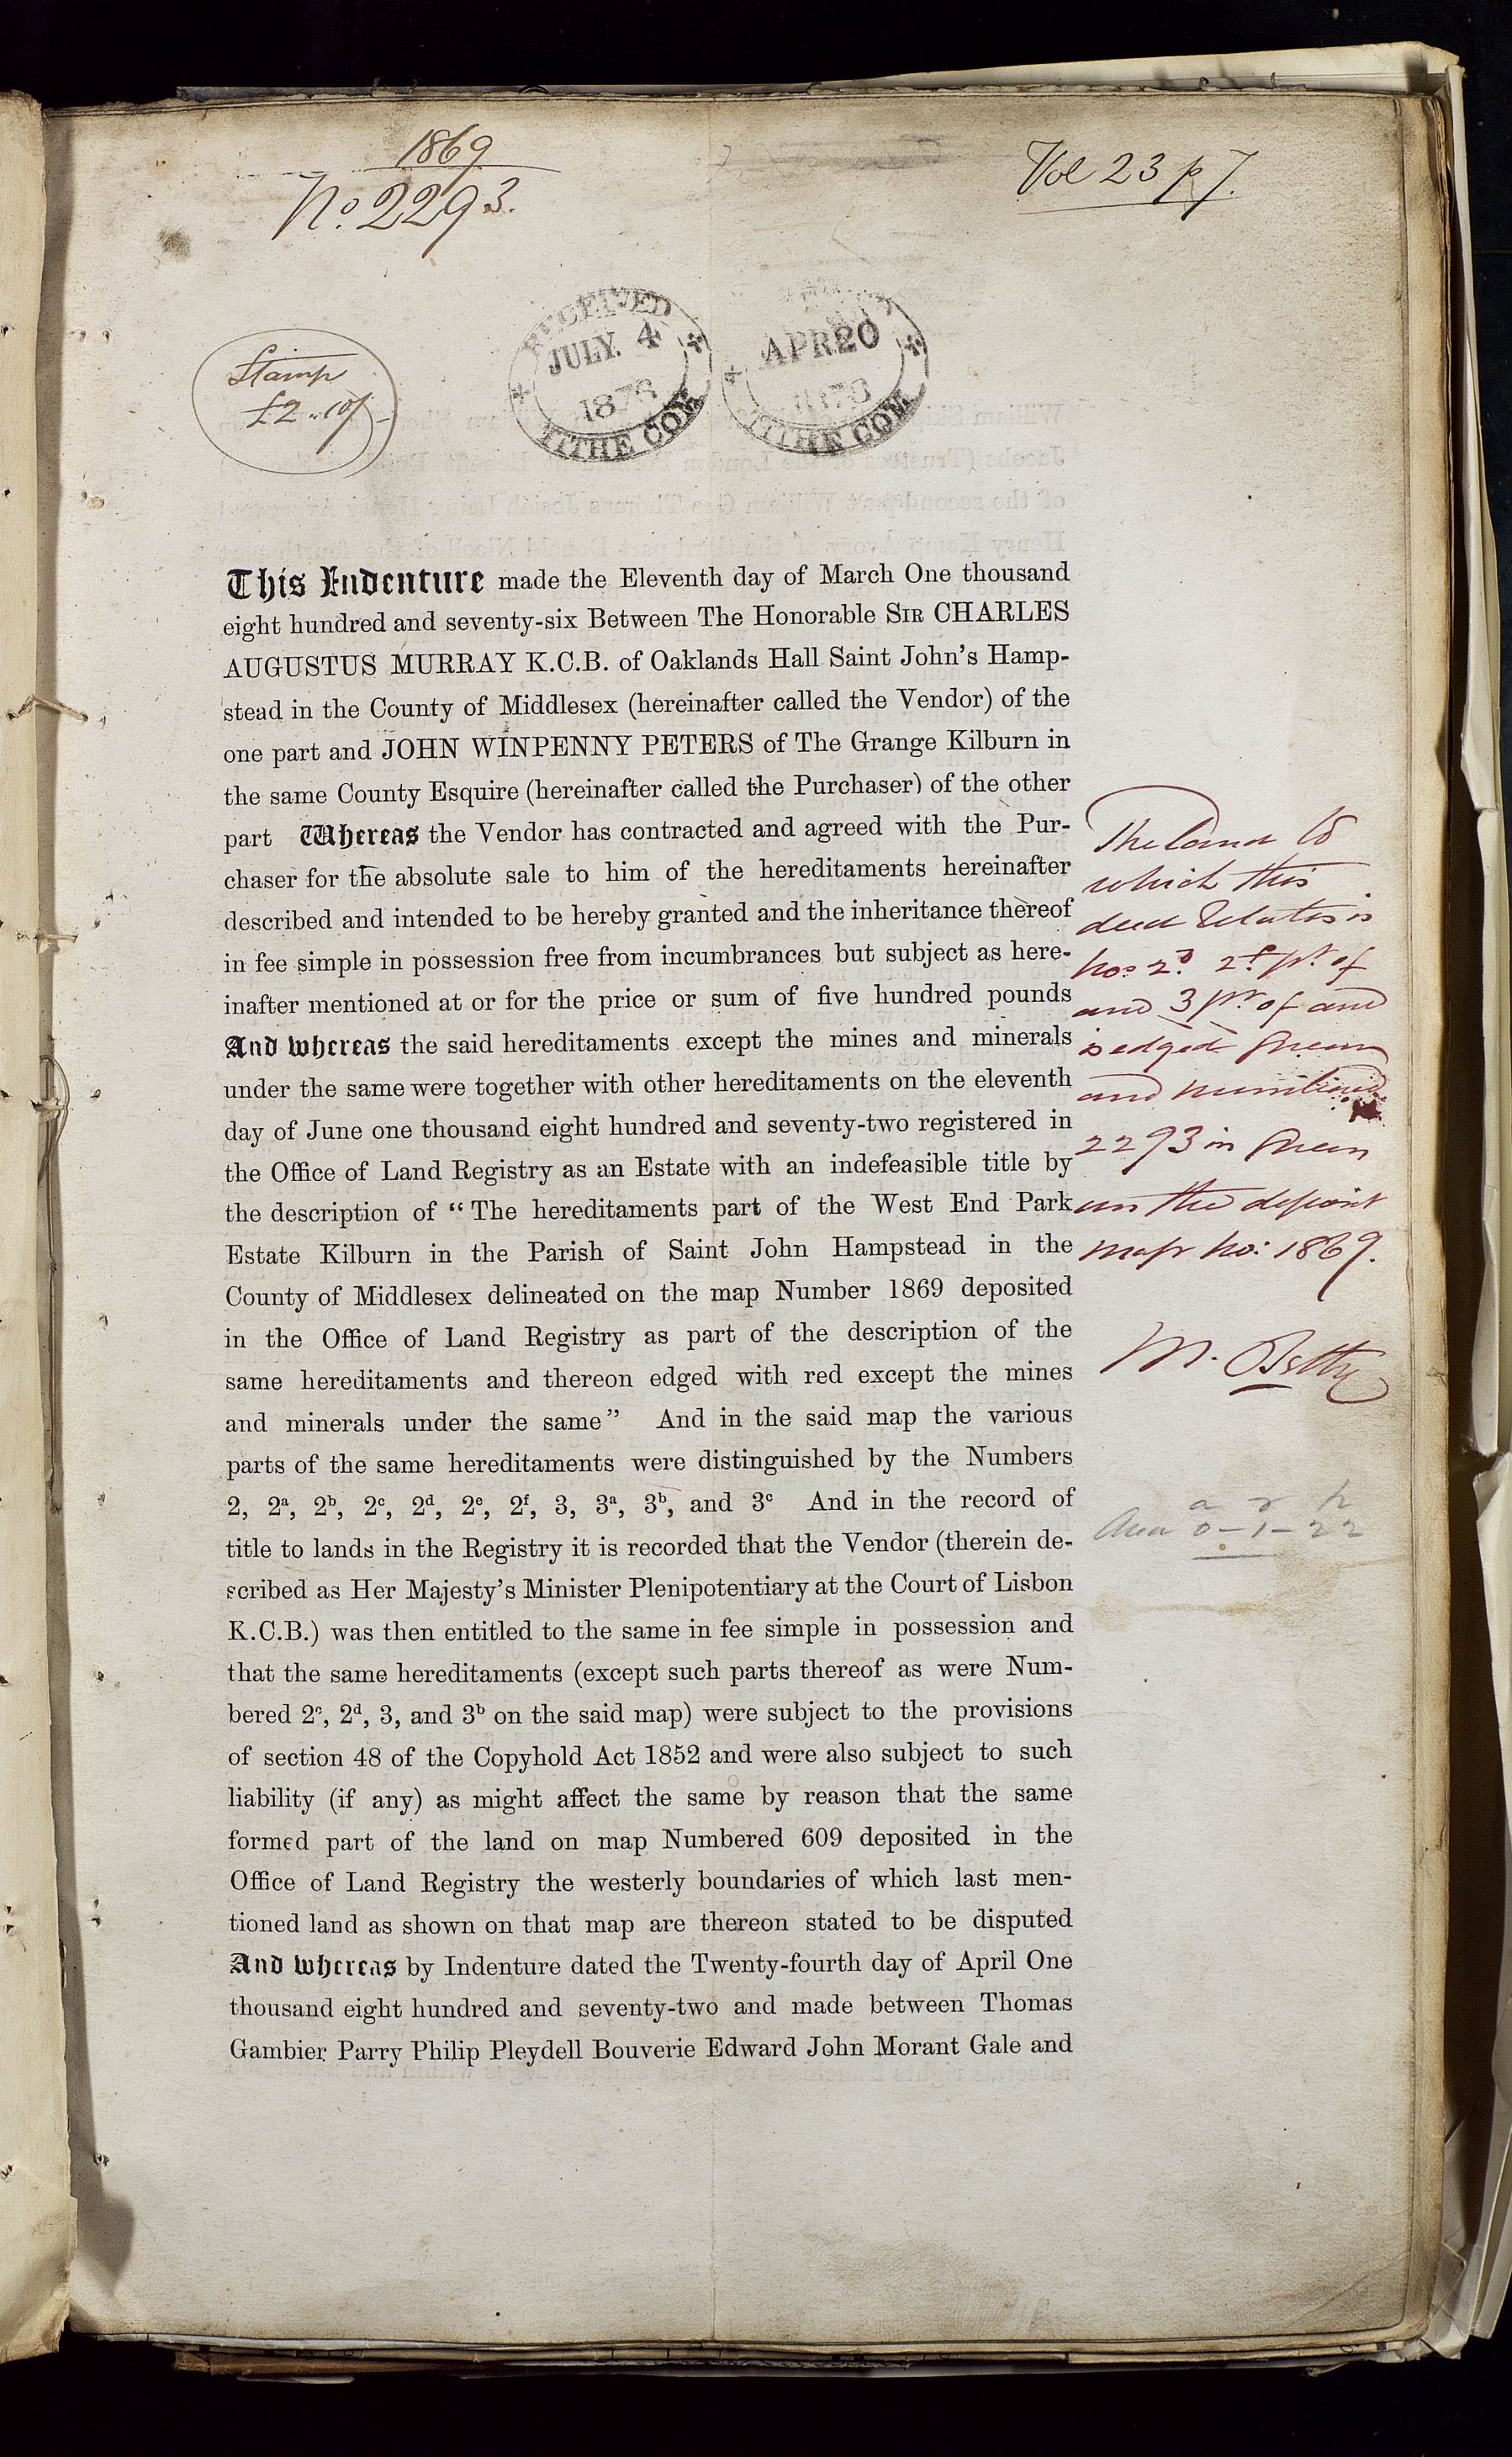 1869
No. 2293.
Vol 23 p 7.
Stamp
£2.10/-
RECEIVED
JULY. 4
1876
TITHE COM
APR 20
1876
TITHE COM
This Indenture made the Eleventh day of March One thousand
eight hundred and seventy-six Between The Honorable SIR CHARLES
AUGUSTUS MURRAY K.C.B. of Oaklands Hall Saint John's Hamp-
stead in the County of Middlesex (hereinafter called the Vendor) of the
one part and JOHN WINPENNY PETERS of The Grange Kilburn in
the same County Esquire (hereinafter called the Purchaser) of the other
part Whereas the Vendor has contracted and agreed with the Pur-
chaser for the absolute sale to him of the hereditaments hereinafter
described and intended to be hereby granted and the inheritance thereof
in fee simple in possession free from incumbrances but subject as here-
inafter mentioned at or for the price or sum of five hundred pounds
And whereas the said hereditaments except the mines and minerals
under the same were together with other hereditaments on the eleventh
day of June one thousand eight hundred and seventy-two registered in
the Office of Land Registry as an Estate with an indefeasible title by
the description of “The hereditaments part of the West End Park
Estate Kilburn in the Parish of Saint John Hampstead in the
County of Middlesex delineated on the map Number 1869 deposited
in the Office of Land Registry as part of the description of the
same hereditaments and thereon edged with red except the mines
and minerals under the same” And in the said map the various
parts of the same hereditaments were distinguished by the Numbers
2, 2ᵃ, 2ᵇ, 2ᶜ, 2ᵈ, 2ᵉ, 2ᶠ, 3, 3ᵃ, 3ᵇ, and 3ᶜ And in the record of
title to lands in the Registry it is recorded that the Vendor (therein de-
scribed as Her Majesty's Minister Plenipotentiary at the Court of Lisbon
K.C.B.) was then entitled to the same in fee simple in possession and
that the same hereditaments (except such parts thereof as were Num-
bered 2ᶜ, 2ᵈ, 3, and 3ᵇ on the said map) were subject to the provisions
of section 48 of the Copyhold Act 1852 and were also subject to such
liability (if any) as might affect the same by reason that the same
formed part of the land on map Numbered 609 deposited in the
Office of Land Registry the westerly boundaries of which last men-
tioned land as shown on that map are thereon stated to be disputed
And whereas by Indenture dated the Twenty-fourth day of April One
thousand eight hundred and seventy-two and made between Thomas
Gambier Parry Philip Pleydell Bouverie Edward John Morant Gale and
The land to
which this
deed relates is
nos 2ᵈ 2ᶠ pt. of
and 3 pt. of and
is edged Green
and numbered
2293 in Green
on the deposit
map No: 1869.
a r p
Area 0-1-22